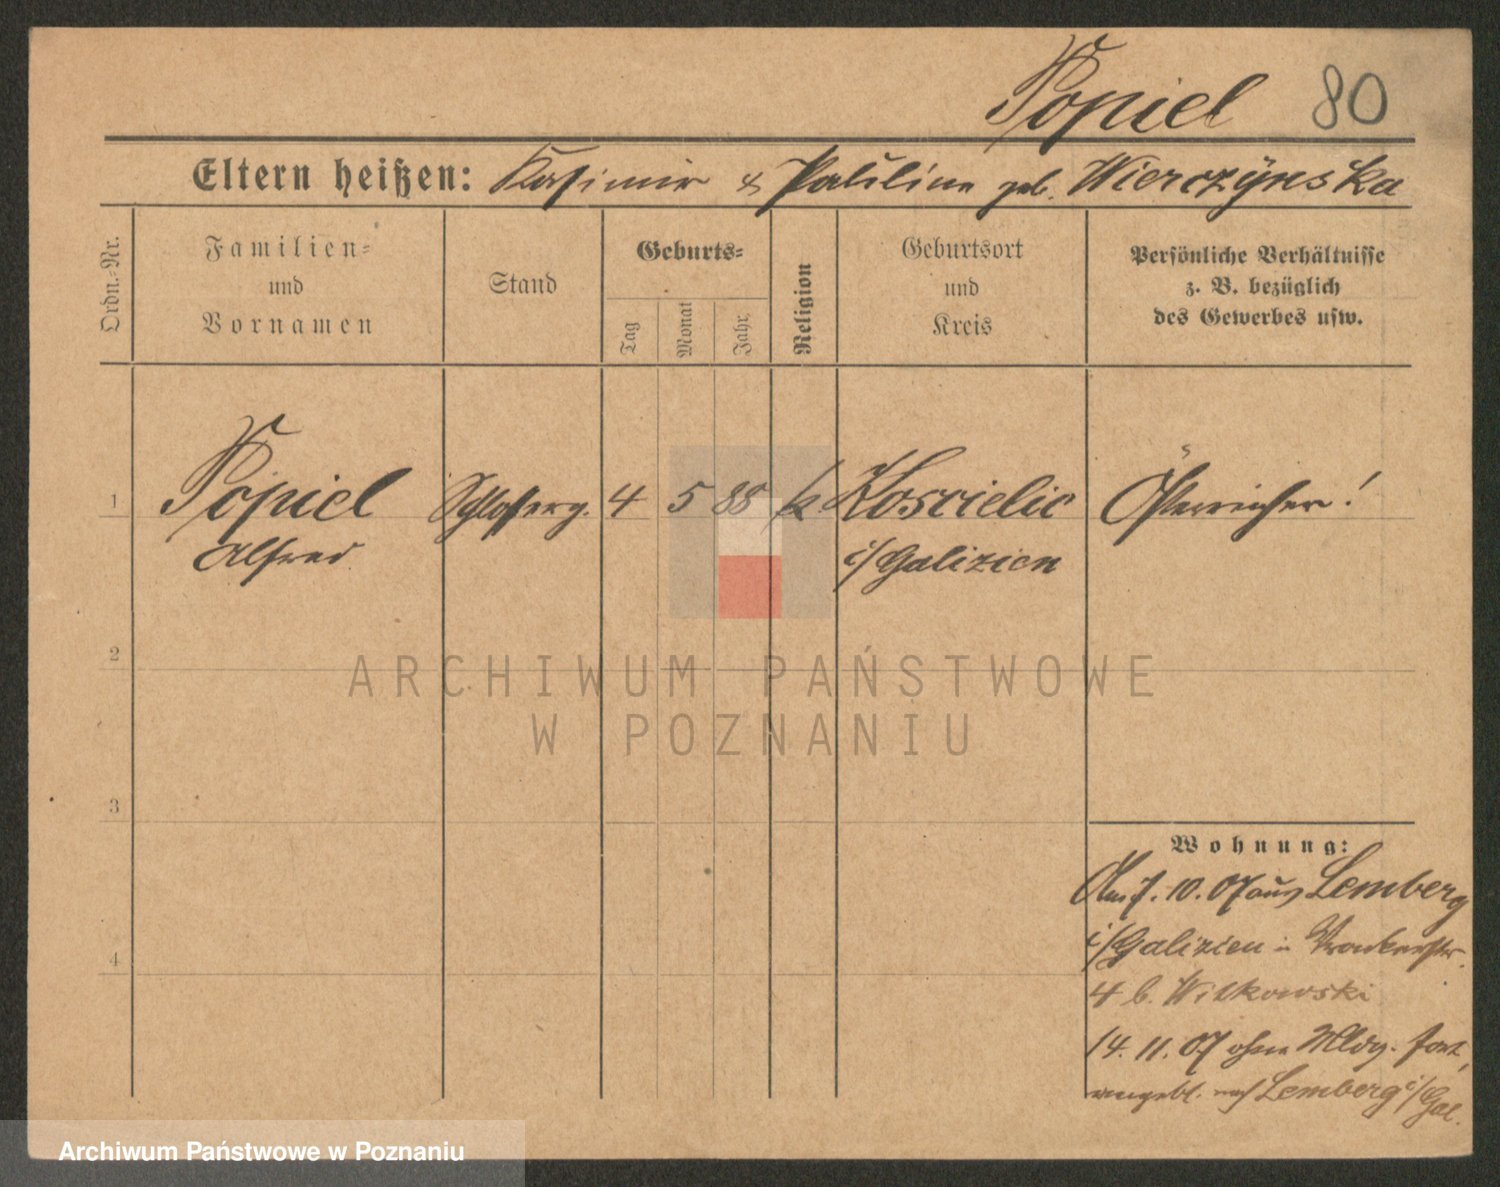 Popiel 80
Eltern heißen: Kasimir & Pauline geb. Wierczynska
Ordn.-Nr.
Familien- und Vornamen
Stand
Geburts-
Tag
Monat
Jahr
Religion
Geburtsort und Kreis
Persönliche Verhältnisse
z. B. bezüglich
des Gewerbes usw.
1 Popiel Schlosserg. 4 5 88 k Koscielic Österreicher!
Alfred i/Galizien
2
ARCHIWUM PAŃSTWOWE
W POZNANIU
3
Wohnung:
Am 7. 10. 07 aus Lemberg
i/Galizien in
4
4 b. Witkowski
14. 11. 07 ohne Mldg. fort,
angebl. nach Lemberg i/Gal.
Archiwum Państwowe w Poznaniu